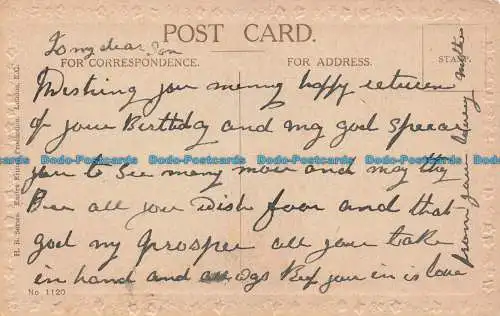 POST CARD.
To my dear Son
FOR CORRESPONDENCE.
FOR ADDRESS.
STAMP
Wishing you menny happy return
of your Birthday and my god spear
you to see many more and may thy
Bee all you wish foor and that
god my prosper all your take
in hand and always Kep you in is love
from your loving mother
H. B. Series. London, E.C.
No 1120
Dodo-Postcards Dodo-Postcards Dodo-Postcards Dodo-Postcards Dodo-Postcards
Dodo-Postcards Dodo-Postcards Dodo-Postcards Dodo-Postcards Dodo-Postcards